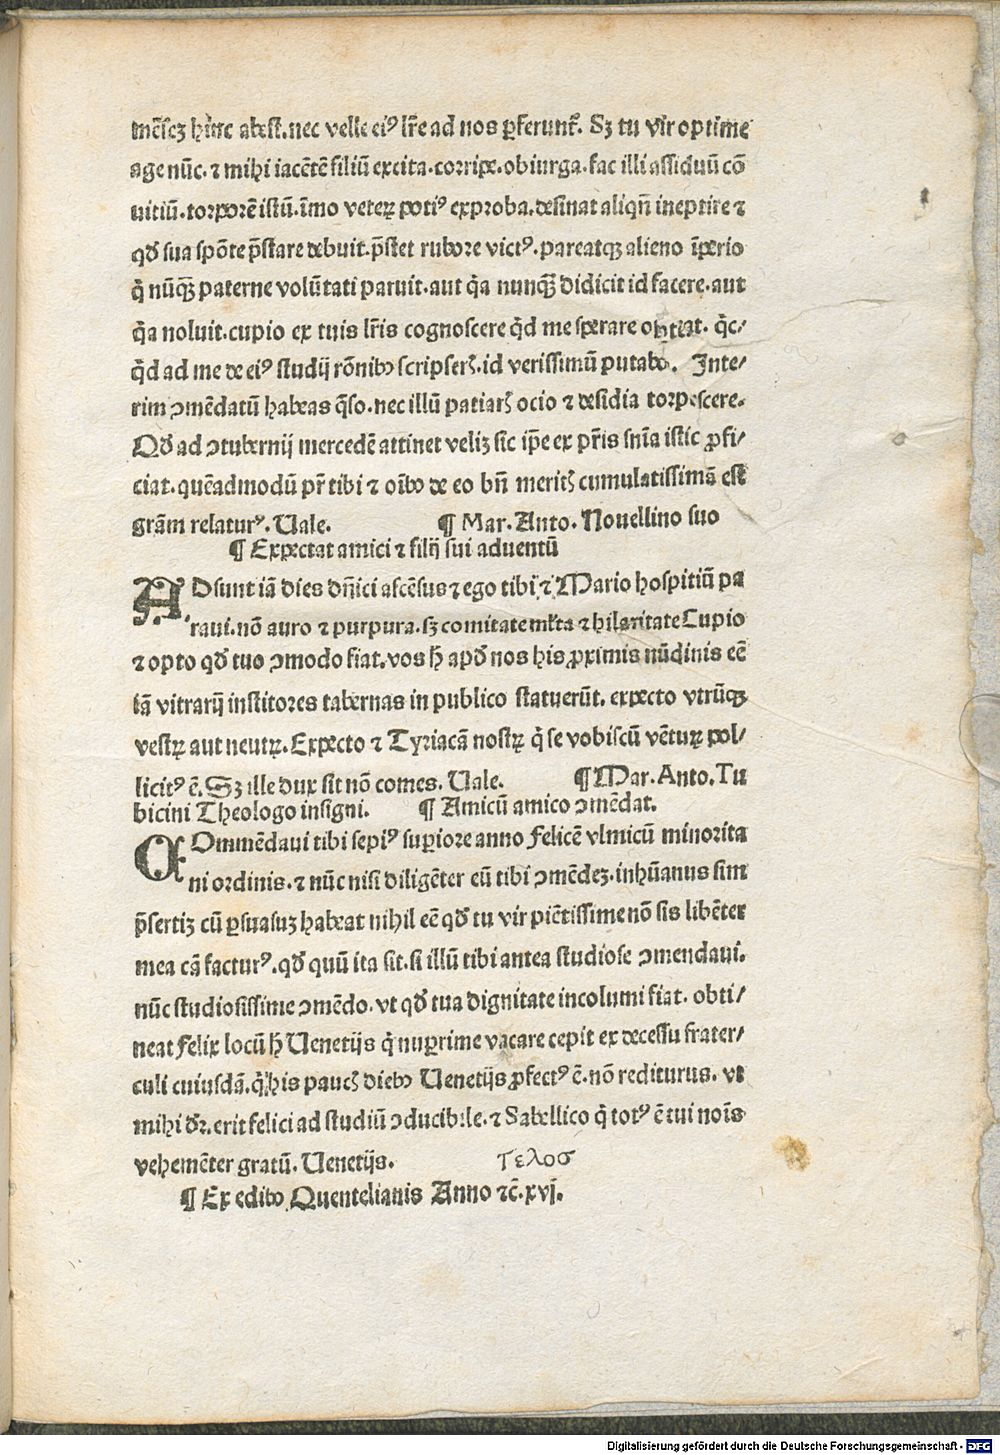 mēseꝫ hinc abest. nec velle eiꝰ lr̄e ad nos ꝑferunt᷑. Sꝫ tu vir optime
age nūc. ⁊ mihi iacētē filiū excita. corripe. obiurga. fac illi assiduū cō
uitiū. torporē istū. īmo veteꝝ potiꝰ exproba. desinat aliqn̄ ineptire ⁊
qd̄ sua spōte p̄stare debuit. p̄stet rubore victꝰ. pareatqꝫ alieno īperio
q̄ nūqꝫ̄ paterne volūtati paruit. aut q̄a nunqꝫ̄ didicit id facere. aut
q̄a noluit. cupio ex tuis lr̄is cognoscere q̄d me sperare oporteat. q̄c/
q̄d ad me de eiꝰ studij rōnibꝰ scripserꝭ. id verissimū putabo. Inte/
rim ↄmēdatū habeas q̄so. nec illū patiarꝭ ocio ⁊ desidia torpescere.
Qd̄ ad ↄtubernij mercedē attinet veliꝫ sic ip̄e ex pr̄is sn̄ia istic ꝓfi/
ciat. quēadmodū pr̄ tibi ⁊ oībꝰ de eo bn̄ meritꝭ cumulatissimā est
grām relaturꝰ. Uale. ¶ Mar. Anto. Nouellino suo
¶ Expectat amici ⁊ filij sui aduentū
ADsunt iā dies dn̄ici ascēsus ⁊ ego tibi ⁊ Mario hospitiū pa
raui. nō auro ⁊ purpura. sꝫ comitate ml̄ta ⁊ hilaritate Cupio
⁊ opto qd̄ tuo ↄmodo fiat. vos h̄ apd̄ nos his ꝓximis nūdinis eē
iā vitrarij institores tabernas in publico statuerūt. expecto vtrūqꝫ
vestꝝ aut neutꝝ. Expecto ⁊ Tyriacā nostꝝ q̄ se vobiscū vētuꝝ pol/
licitꝰ ē. Sꝫ ille dux sit nō comes. Uale. ¶ Mar. Anto. Tu
bicini Theologo insigni. ¶ Amicū amico ↄmēdat.
COmmēdaui tibi sepiꝰ supiore anno Felicē vlmicū minorita
ni ordinis. ⁊ nūc nisi diligēter eū tibi ↄmēdeꝫ. inhūanus sim
p̄sertiꝫ cū ꝑsuasuꝫ habeat nihil eē qd̄ tu vir piētissime nō sis libēter
mea cā facturꝰ. qd̄ quū ita sit. si illū tibi antea studiose ↄmendaui.
nūc studiosissime ↄmēdo. vt qd̄ tua dignitate incolumi fiat. obti/
neat Felix locū h̄ Uenetijs q̄ nuꝑrime vacare cepit ex decessu frater/
culi cuiusdā. q̄ his paucꝭ diebꝰ Uenetijs ꝓfectꝰ ē. nō rediturus. vt
mihi dr̄. erit felici ad studiū ↄducibile. ⁊ Sabellico q̄ totꝰ ē tui noīs
vehemēter gratū. Uenetijs. Τελοσ
¶ Ex edibꝰ Quentelianis Anno ⁊c̄. xvj.
Digitalisierung gefördert durch die Deutsche Forschungsgemeinschaft - DFG